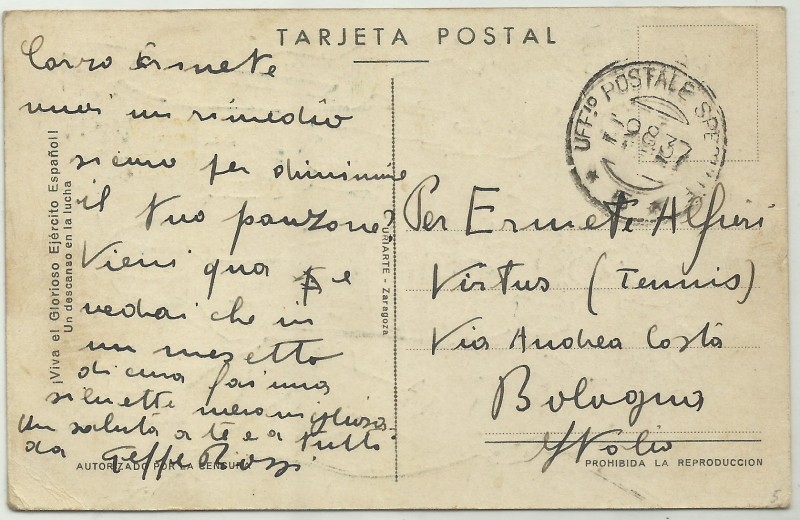 TARJETA POSTAL
Carro Ermete
vuoi un rimedio
sicuro per diminuire
il tuo panzone?
Vieni qua e
vedrai che in
un mesetto
di cura fai una
siluette meravigliosa.
Un saluto a te e a tutti
da Geppe Rossi
¡Viva el Glorioso Ejército Español!
Un descanso en la lucha
AUTORIZADO POR LA CENSURA
URIARTE - Zaragoza
UFF.º POSTALE SPECIALE
9.8.37
Per Ermete Alfieri
Virtus (Tennis)
Via Andrea Costa
Bologna
Italia
PROHIBIDA LA REPRODUCCION
5